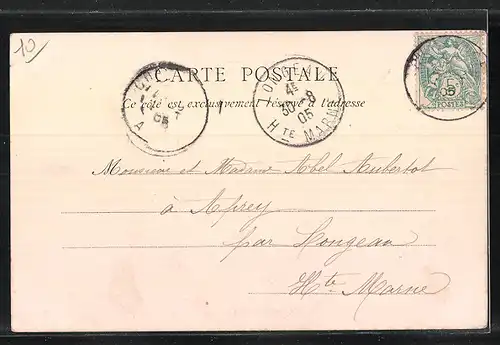 10
CARTE POSTALE
Ce côté est exclusivement réservé à l'adresse
4E
30 -8
05
HTE MARNE
5
POSTES
Monsieur et Madame Abel Aubertot
à Aprey
par Longeau
Hte Marne